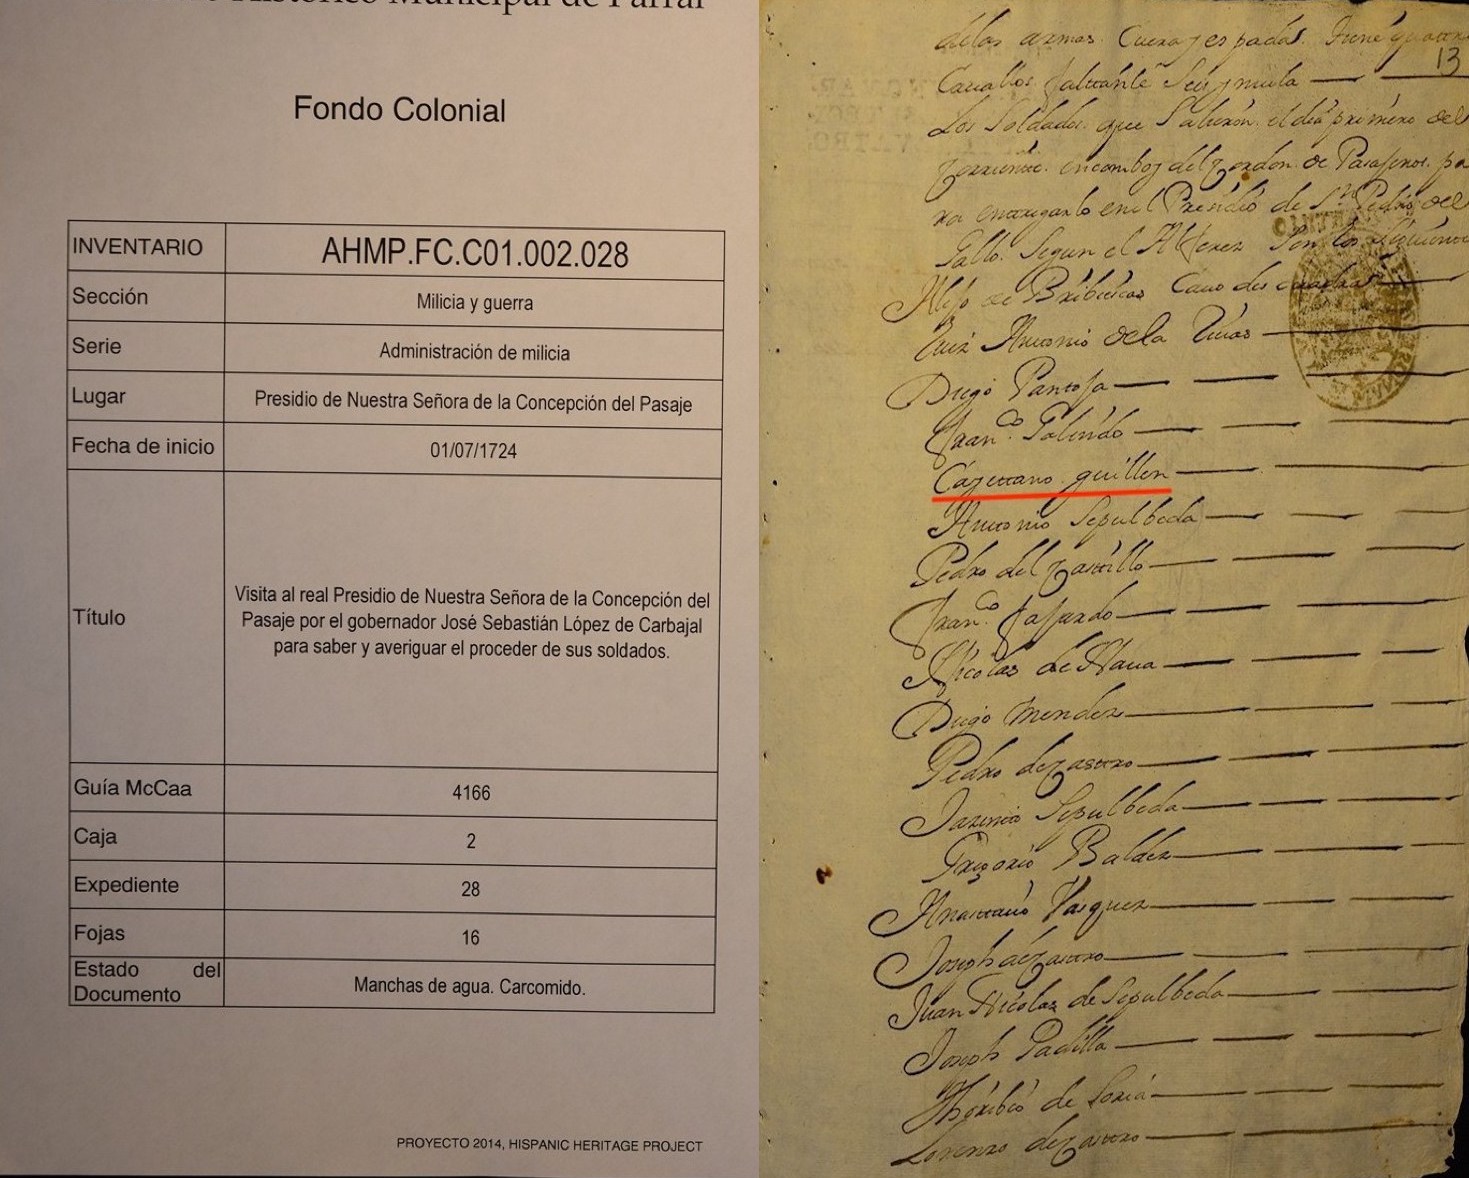 Histórico Municipal de Parral
Fondo Colonial
INVENTARIO AHMP.FC.C01.002.028
Sección Milicia y guerra
Serie Administración de milicia
Lugar Presidio de Nuestra Señora de la Concepción del Pasaje
Fecha de inicio 01/07/1724
Título Visita al real Presidio de Nuestra Señora de la Concepción del
Pasaje por el gobernador José Sebastián López de Carbajal
para saber y averiguar el proceder de sus soldados.
Guía McCaa 4166
Caja 2
Expediente 28
Fojas 16
Estado del
Documento Manchas de agua. Carcomido.
PROYECTO 2014, HISPANIC HERITAGE PROJECT
de las armas. Cuera y espadas. tiene quattro
13
Cavallos faltanle seis y mula
Los Soldados que Salieron el dia primero del
Corriente en comboy del Cordon de Pasajeros pa
ra entregarlo en el Presidio de Sn Pedro del
Gallo. Segun el Alferez Son los siguientes
de Bribiescas Cavo de esquadra
Luis Antonio de la
Diego Pantoja
Franco. Galindo
Cayettano guillen
Antonio Sepulbeda
Pedro del Castillo
Franco. fajardo
Nicolas de Nava
Diego mendez
Pedro de Castro
Sepulbeda
Grigorio Baldez
Anasttacio Vasquez
Joseph de Castro
Juan Nicolas de Sepulbeda
Joseph Padilla
Thoribio de Soria
Lorenzo de Castro